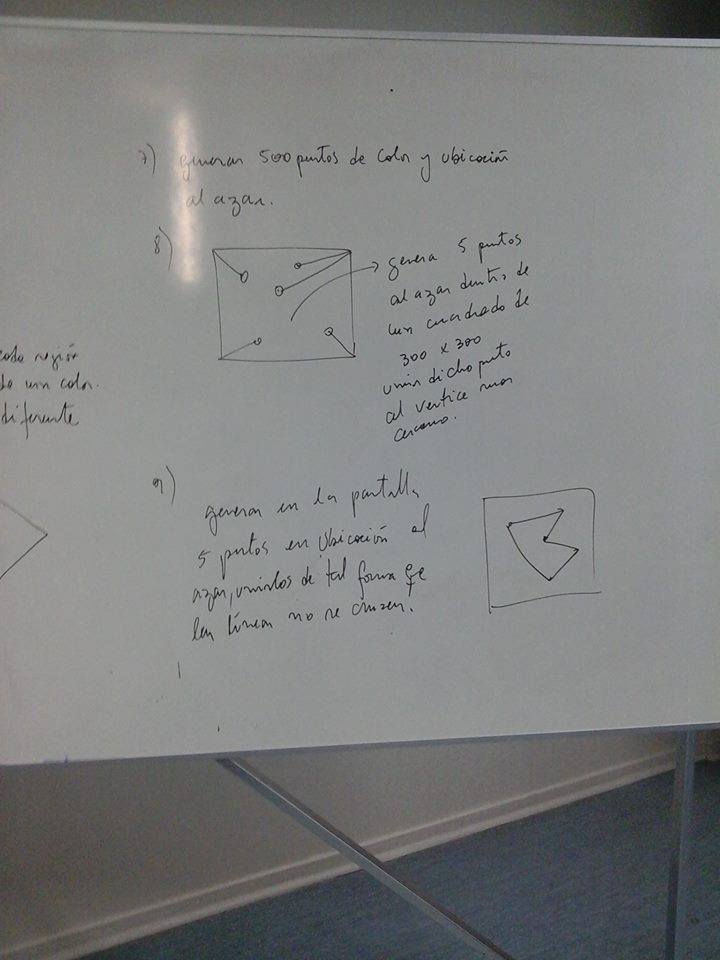 7) generar 500 puntos de color y ubicación
al azar.
8)
genera 5 puntos
al azar dentro de
un cuadrado de
300 x 300
unir dicho punto
al vertice mas
cercano.
cada región
de un color
diferente
9)
generar en la pantalla
5 puntos en ubicación al
azar, unirlos de tal forma qe
las líneas no se cruzen.